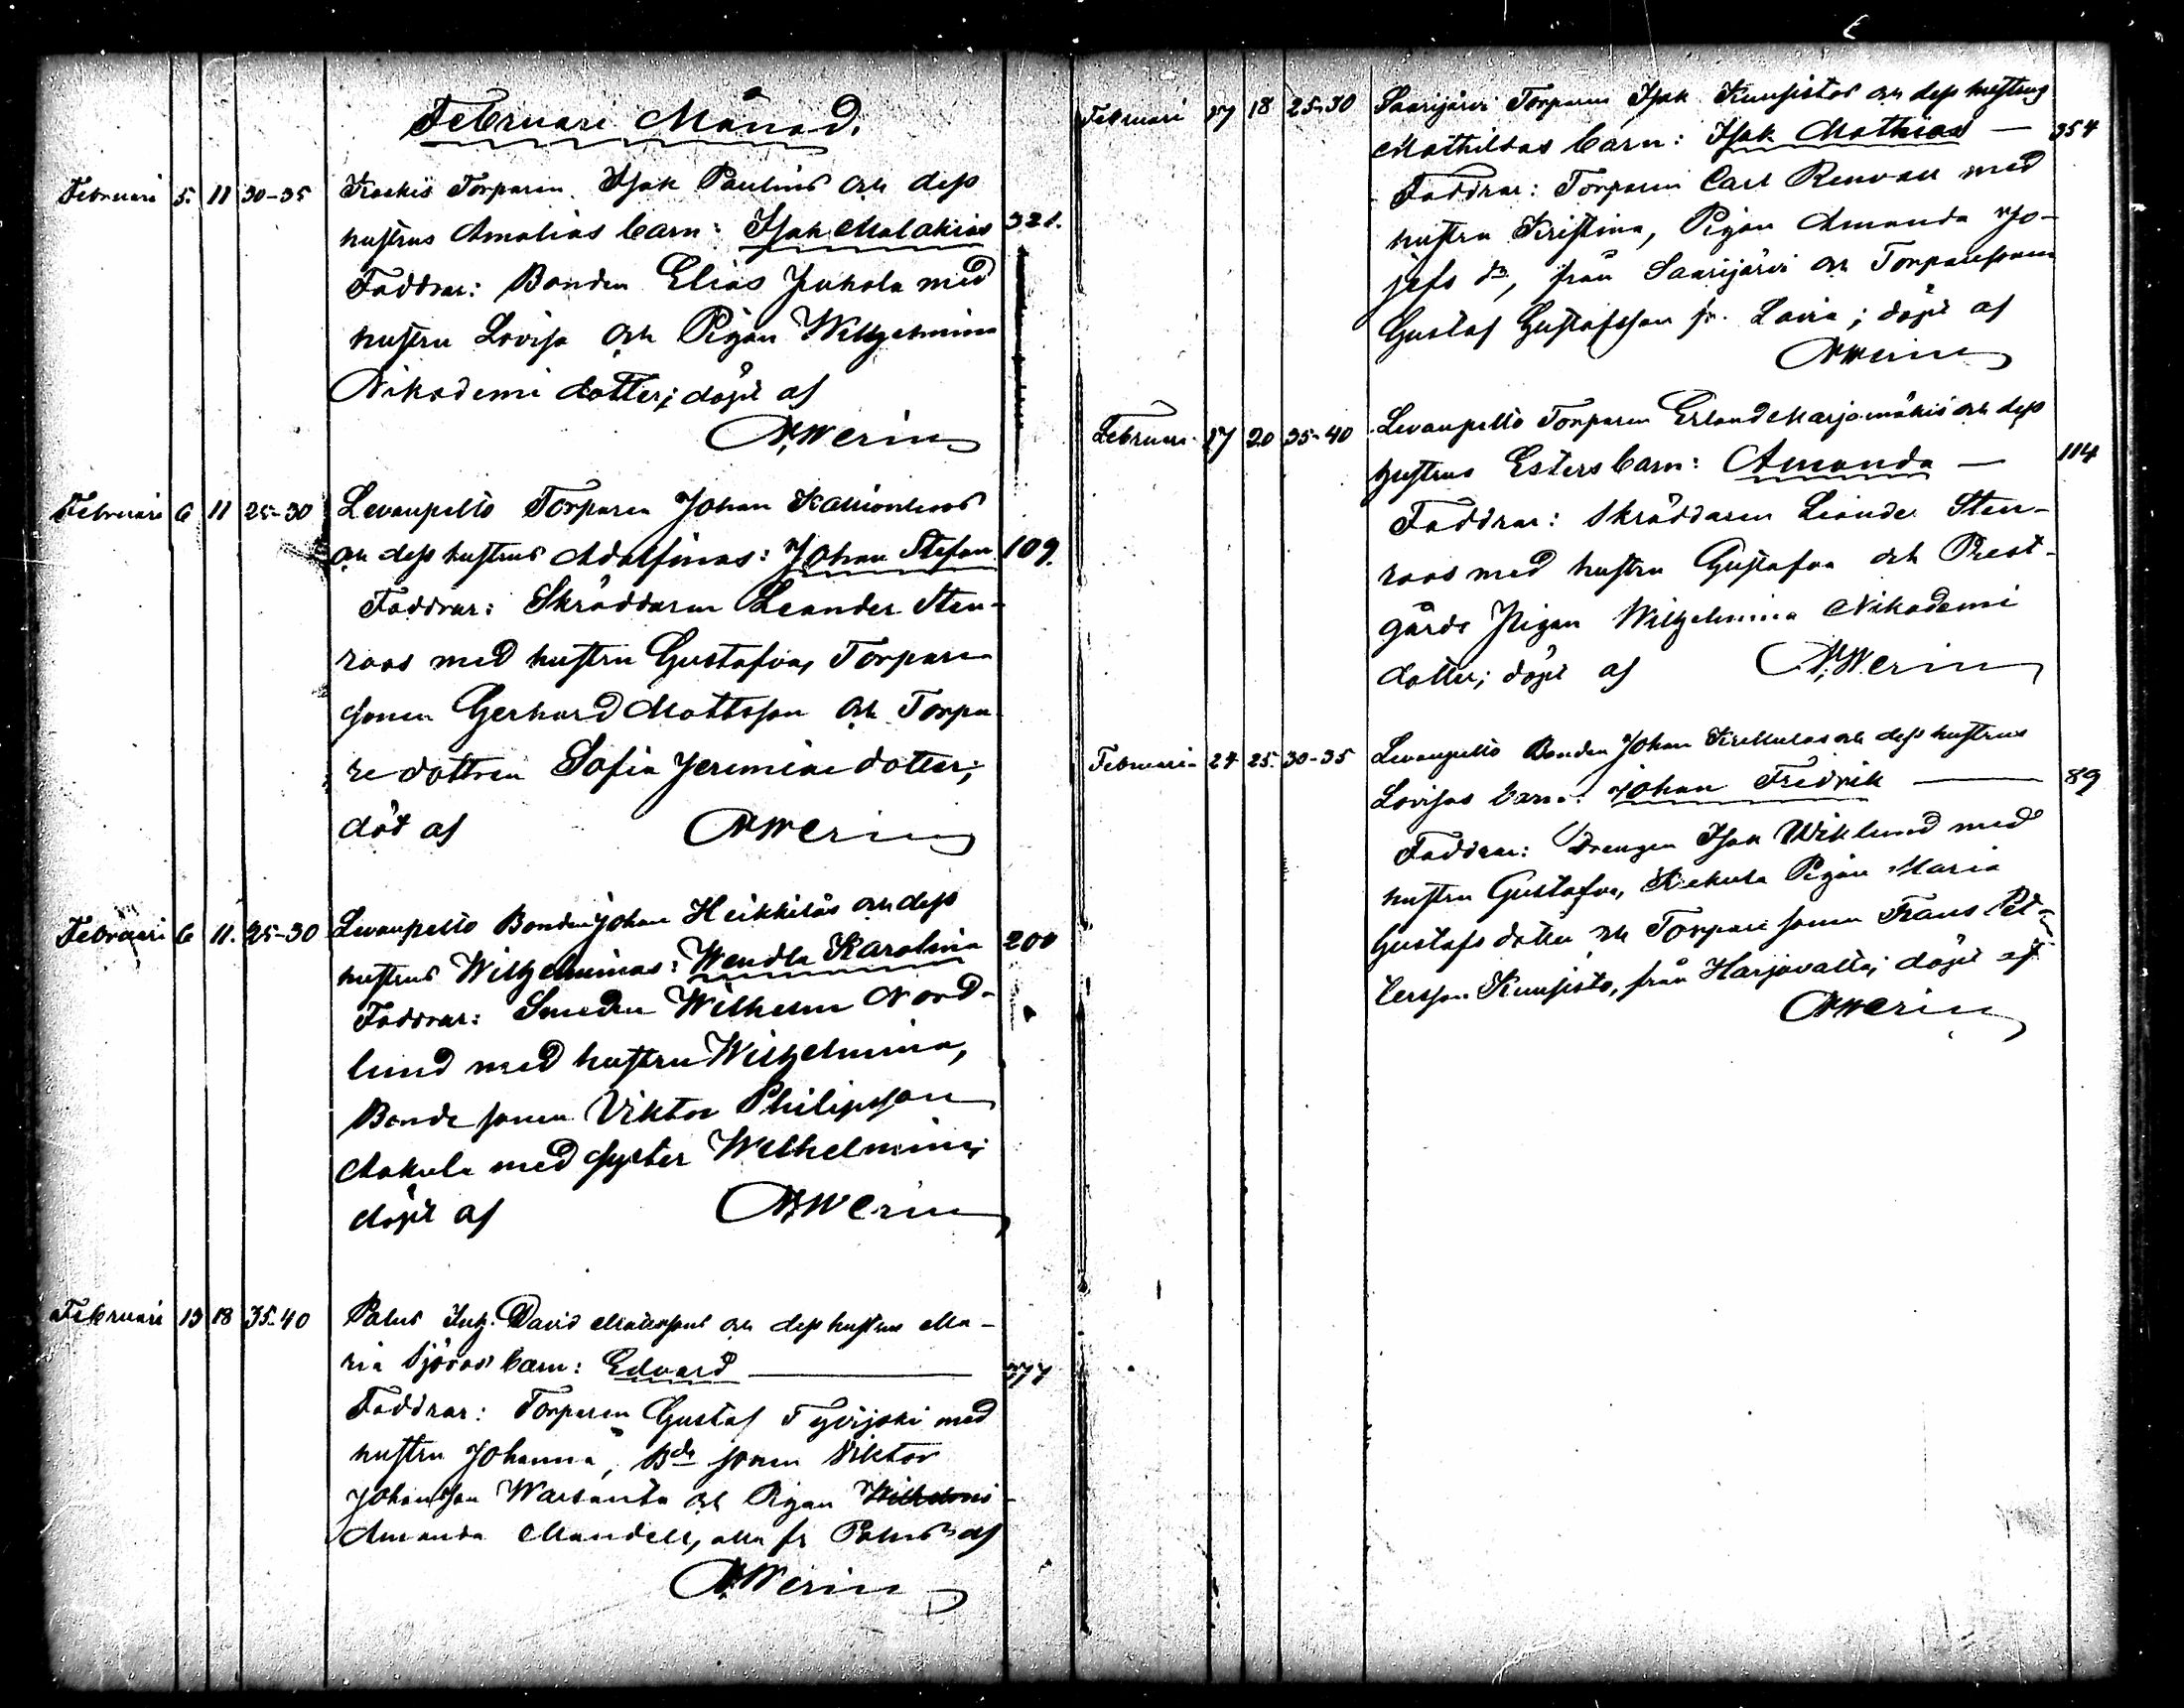 Februari Månad.
Februari 5. 11 30-35 Torparen Isak Paulins och dess
hustrus Amalias barn: Isak Malakias 321.
Faddrar: Bonden Elias Juhola med
hustru Lovisa och Pigan Wilhelmina
Nikodemi dotter; döpt af
Werin
Februari 6 11 25-30 Levanpelto Torparen Johan
och dess hustrus Adolfinas: Johan Stefan 109.
Faddrar: Skräddaren Leander Sten-
roos med hustru Gustafva, Torpare
sonen Gerhard Mattsson och Torpa
re dottren Sofia Jeremiae dotter;
döt af Werin
Februari 6 11. 25-30 Levanpelto Bonden Johan Heikkiläs och dess
hustrus Wilhelminas: Wendla Karolina 200
Faddrar: Smeden Wilhelm Nord-
lund med hustru Wilhelmina,
Bonde sonen Viktor Philipsson
med syster Wilhelmina;
döpt af Werin
Februari 13 18 35-40 Palus Inh. David och dess hustrus Ma-
ria barn: Edvard 377
Faddrar: Torparen Gustaf med
hustru Johanna, Bde sonen Viktor
Johansson och Pigan
Amanda Mandell, alla fr Palus af
Werin
Februari 17 18 25-30 Saarijärvi Torparen Isak Kuusistos och dess hustrus
Mathildas barn: Isak Mathias — 354
Faddrar: Torparen Carl Renvall med
hustru Kristina, Pigan Amanda Jo-
sefs dr, från Saarijärvi och Torparesonen
Gustaf Gustafsson fr. ; döpt af
Werin
Februari 17 20 35-40 Levanpelto Torparen Erland Marjamäkis och dess
hustrus Esters barn: Amanda — 114
Faddrar: Skräddaren Leander Sten-
roos med hustru Gustafva och Prest-
gårds Pigan Wilhelmina Nikodemi
dotter; döpt af Werin
Februari 24 25. 30-35 Levanpelto Bonden Johan och dess hustrus
Lovisas barn: Johan Fredrik — 89
Faddrar: Drengen Isak Wiklund med
hustru Gustafva, Pigan Maria
Gustafs dotter och Torpare sonen Frans Pet-
tersson Kuusisto, från Harjavalta; döpt af
Werin